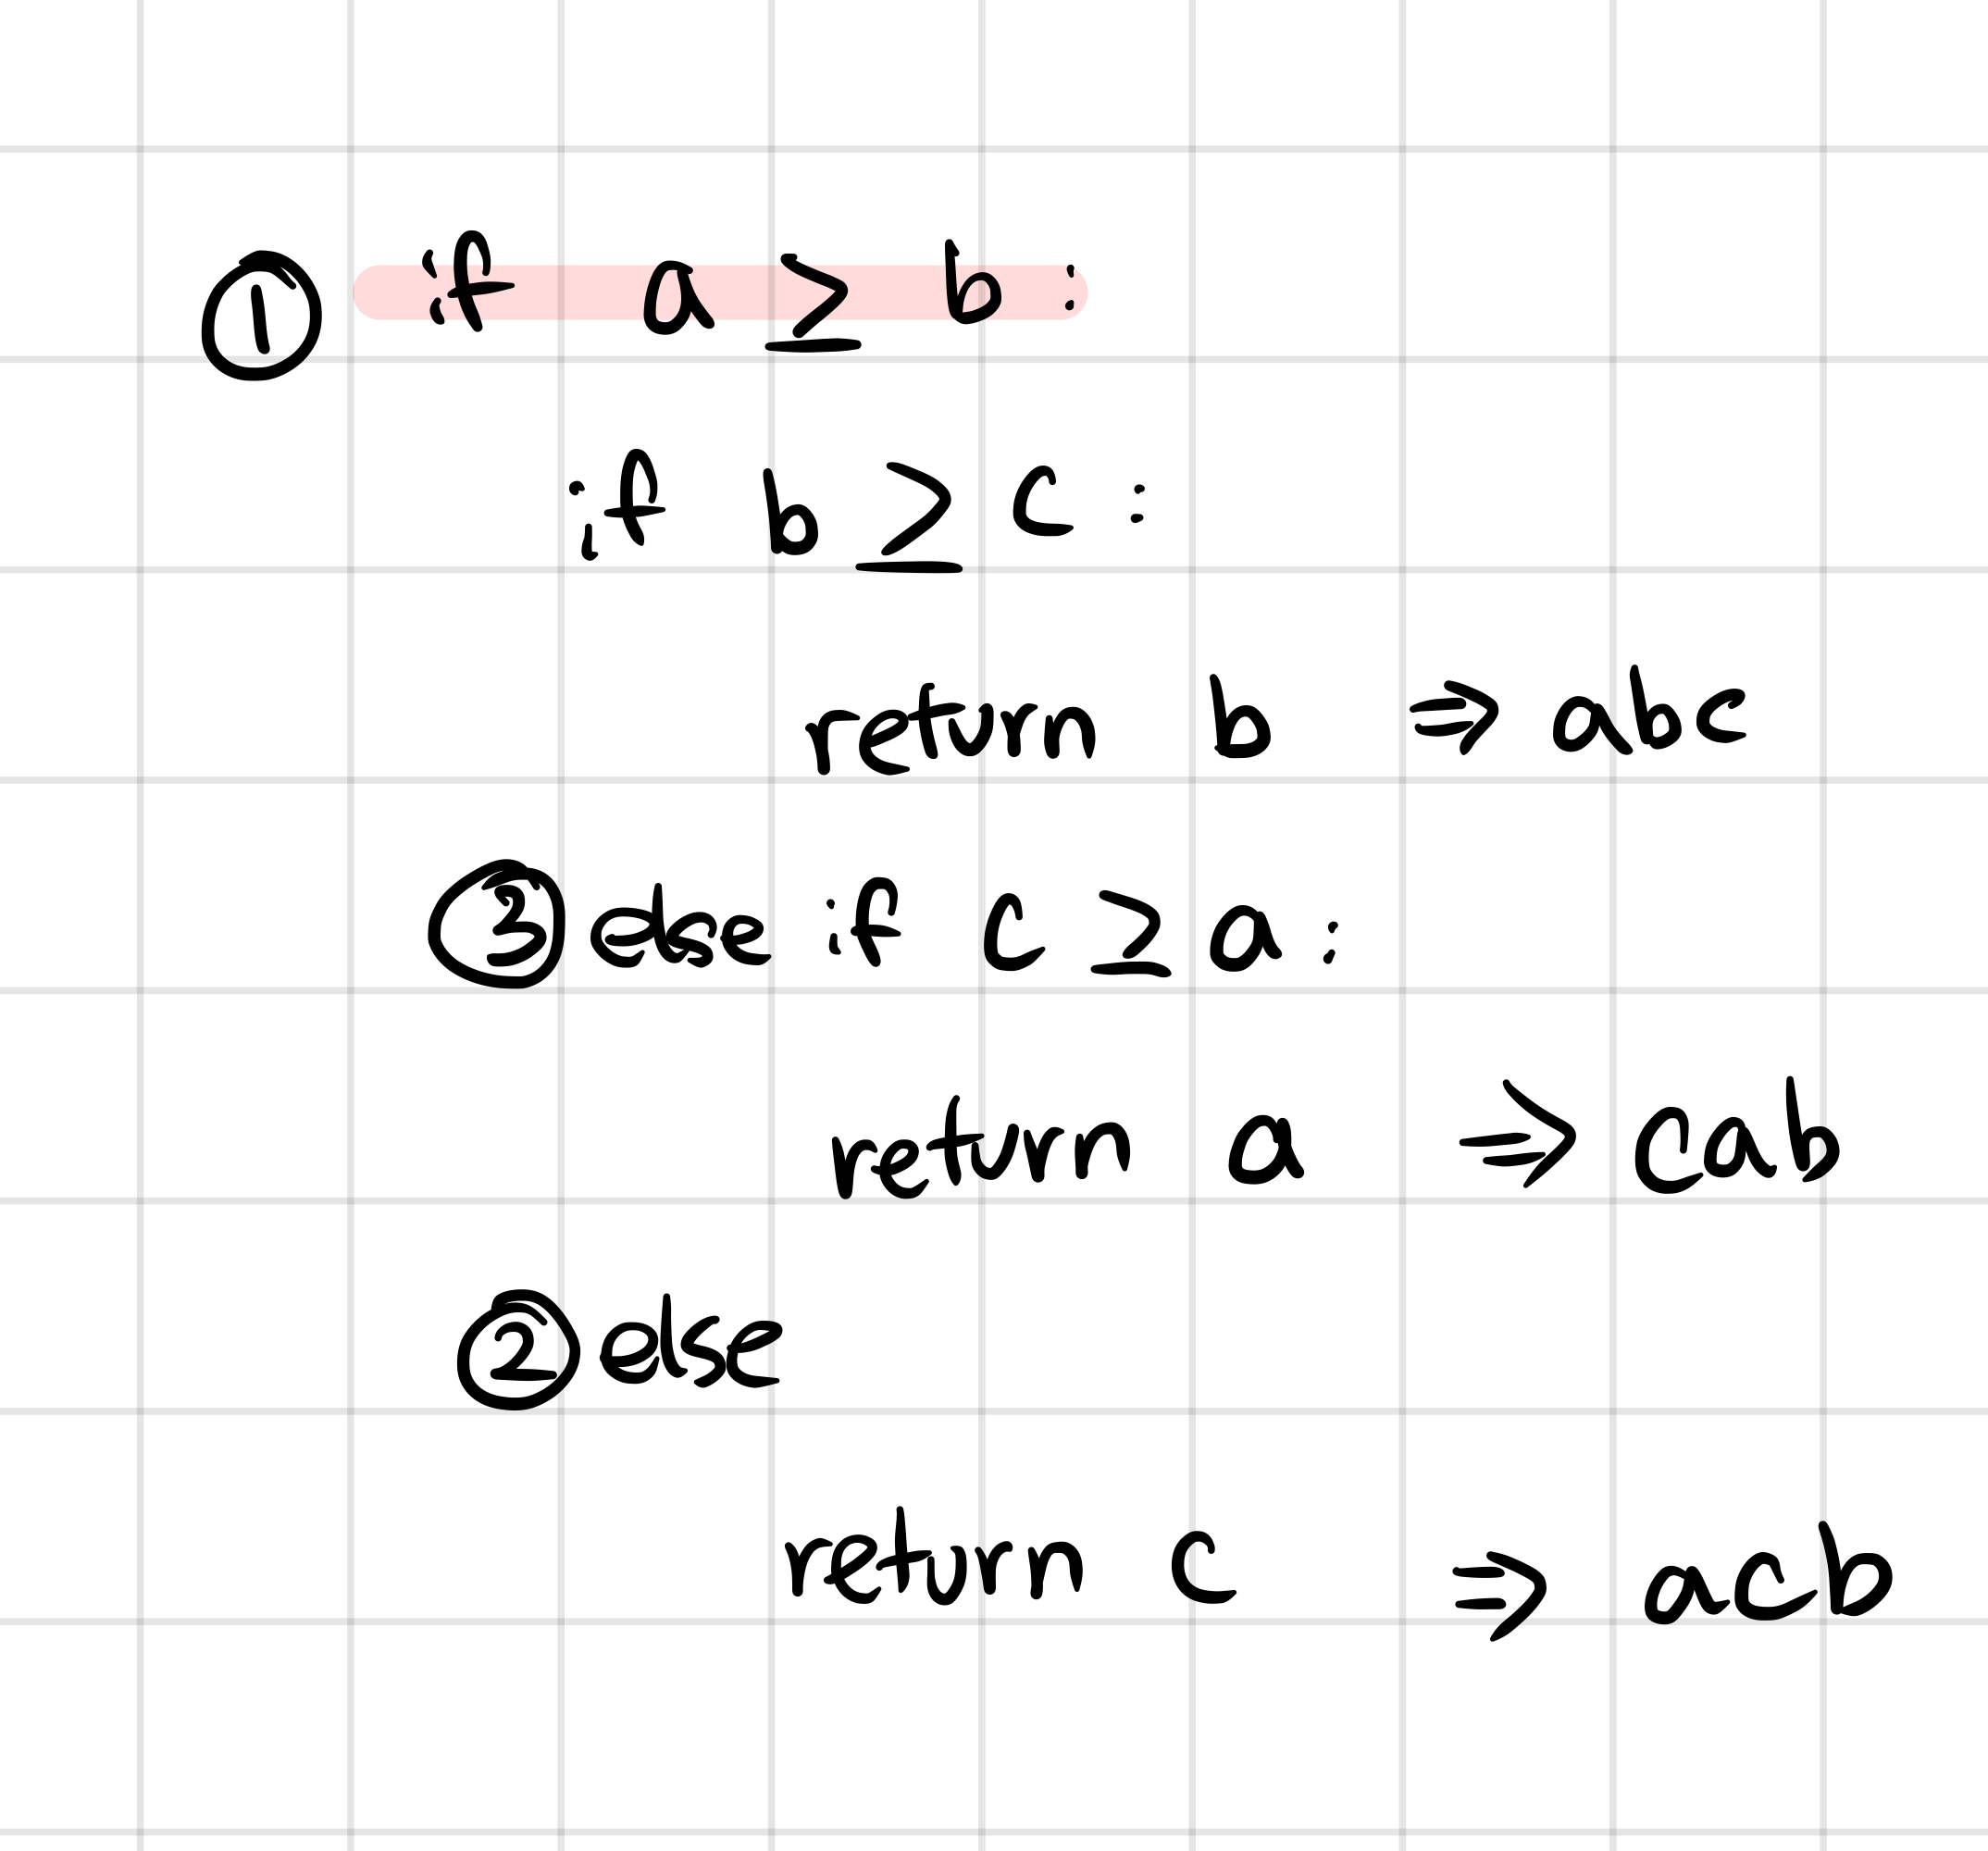 ① if a ≥ b:
if b ≥ c :
return b ⇒ abc
③ else if c ≥ a :
return a ⇒ cab
② else
return c ⇒ acb